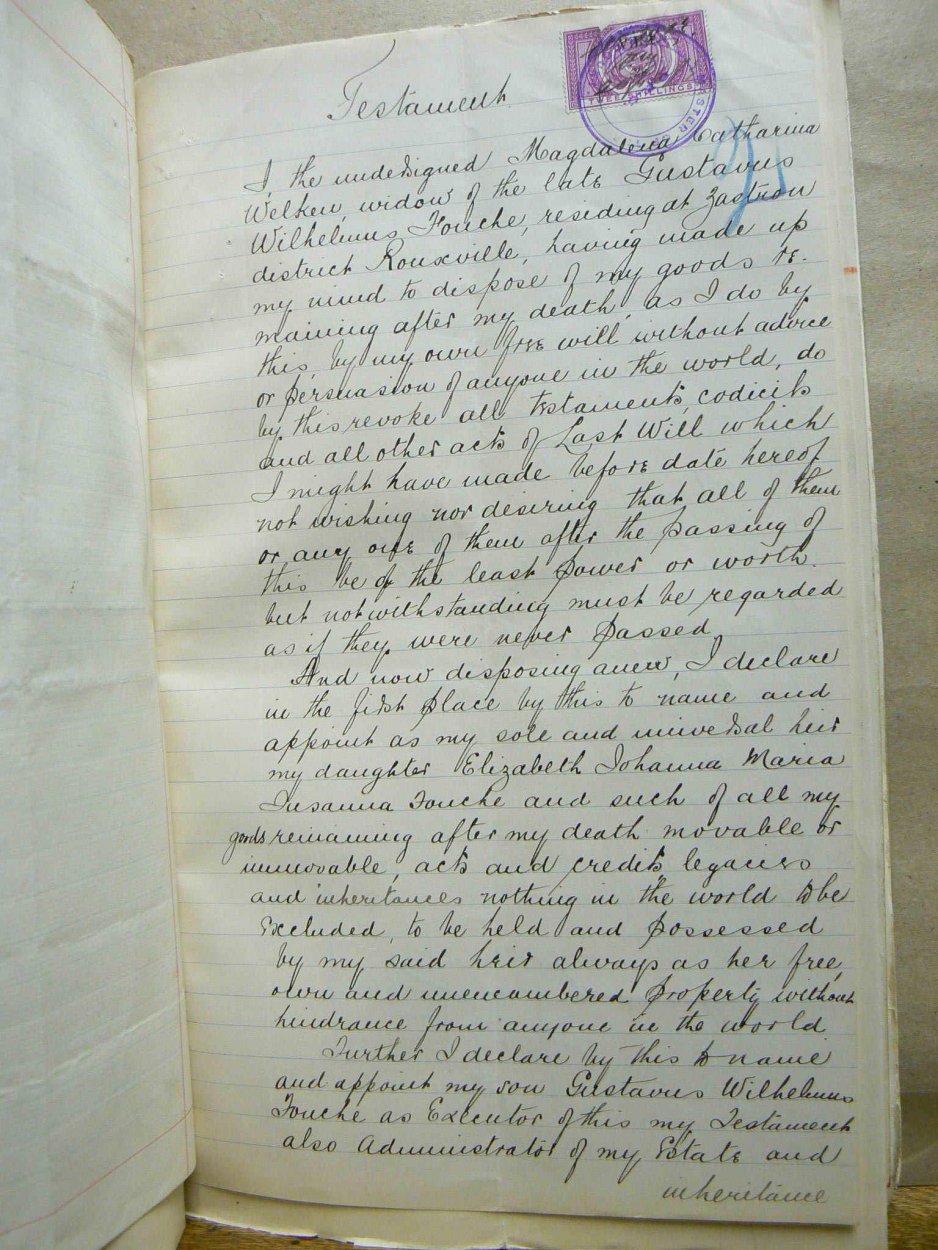 TWEE SHILLINGS
Testament
I, the undersigned Magdalena Catharina
Welken, widow of the late Gustavus
Wilhelmus Fouche, residing at Zastron
district Rouxville, having made up
my mind to dispose of my goods re-
maining after my death, as I do by
this, by my own free will without advice
or persuasion of anyone in the world, do
by this revoke all testaments, codicils
and all other acts of Last Will which
I might have made before date hereof
not wishing nor desiring that all of them
or any one of them after the passing of
this be of the least power or worth.
but notwithstanding must be regarded
as if they were never passed.
And now disposing anew, I declare
in the first place by this to name and
appoint as my sole and universal heir
my daughter Elizabeth Johanna Maria
Susanna Fouche and such of all my
goods remaining after my death movable or
immovable, acts and credits, legacies
and inheritances nothing in the world to be
Excluded, to be held and possessed
by my said heir always as her free,
own and unencumbered property without
hindrance from anyone in the world
Further I declare by this to name
and appoint my son Gustavus Wilhelmus
Fouche as Executor of this my Testament
also Administrator of my Estate and
inheritance